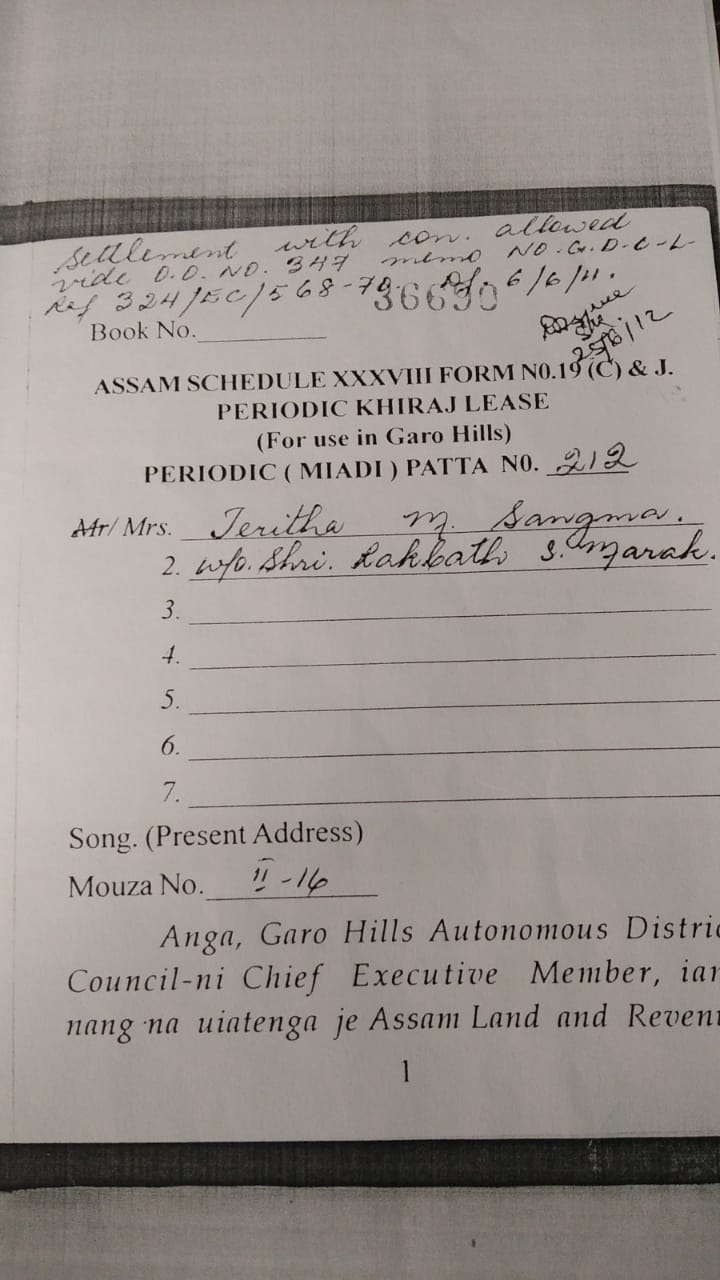 Settlement with con. allowed
vide D.O. NO. 347 memo NO. G.D.C-L-
Ref 324/EC/568-70. Df. 6/6/11.
36630
25/6/12
Book No.
ASSAM SCHEDULE XXXVIII FORM N0.19 (C) & J.
PERIODIC KHIRAJ LEASE
(For use in Garo Hills)
PERIODIC ( MIADI ) PATTA N0. 212
Mr/ Mrs. Jeritha M. Sangma.
2. w/o. Shri. Rakbath S. Marak.
3.
4.
5.
6.
7.
Song. (Present Address)
Mouza No. II-16
Anga, Garo Hills Autonomous Distric
Council-ni Chief Executive Member, ian
nang na uiatenga je Assam Land and Revenu
1